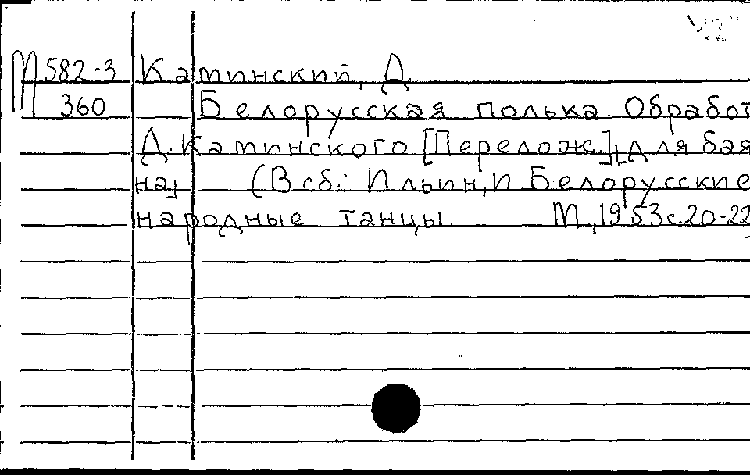 М 582-3 Каминский, Д.
360 Белорусская полька Обработ
Д. Каминского [Перелож.] для бая
на, (В сб.: Ильин, И Белорусские
народные танцы М., 1953 с. 20-22